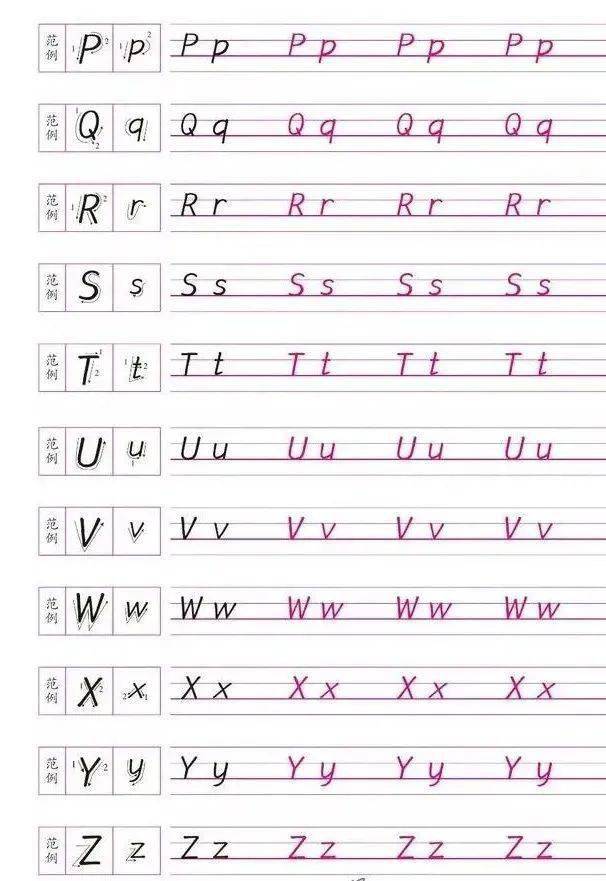 范例 P 1 2 p 1 2 P p P p P p P p
范例 Q 1 2 q Q q Q q Q q Q q
范例 R 1 2 r R r R r R r R r
范例 S s S s S s S s S s
范例 T 1 2 t 1 2 T t T t T t T t
范例 U u 1 U u U u U u U u
范例 V v V v V v V v V v
范例 W w W w W w W w W w
范例 X 1 2 x 2 1 X x X x X x X x
范例 Y 1 2 y Y y Y y Y y Y y
范例 Z z Z z Z z Z z Z z